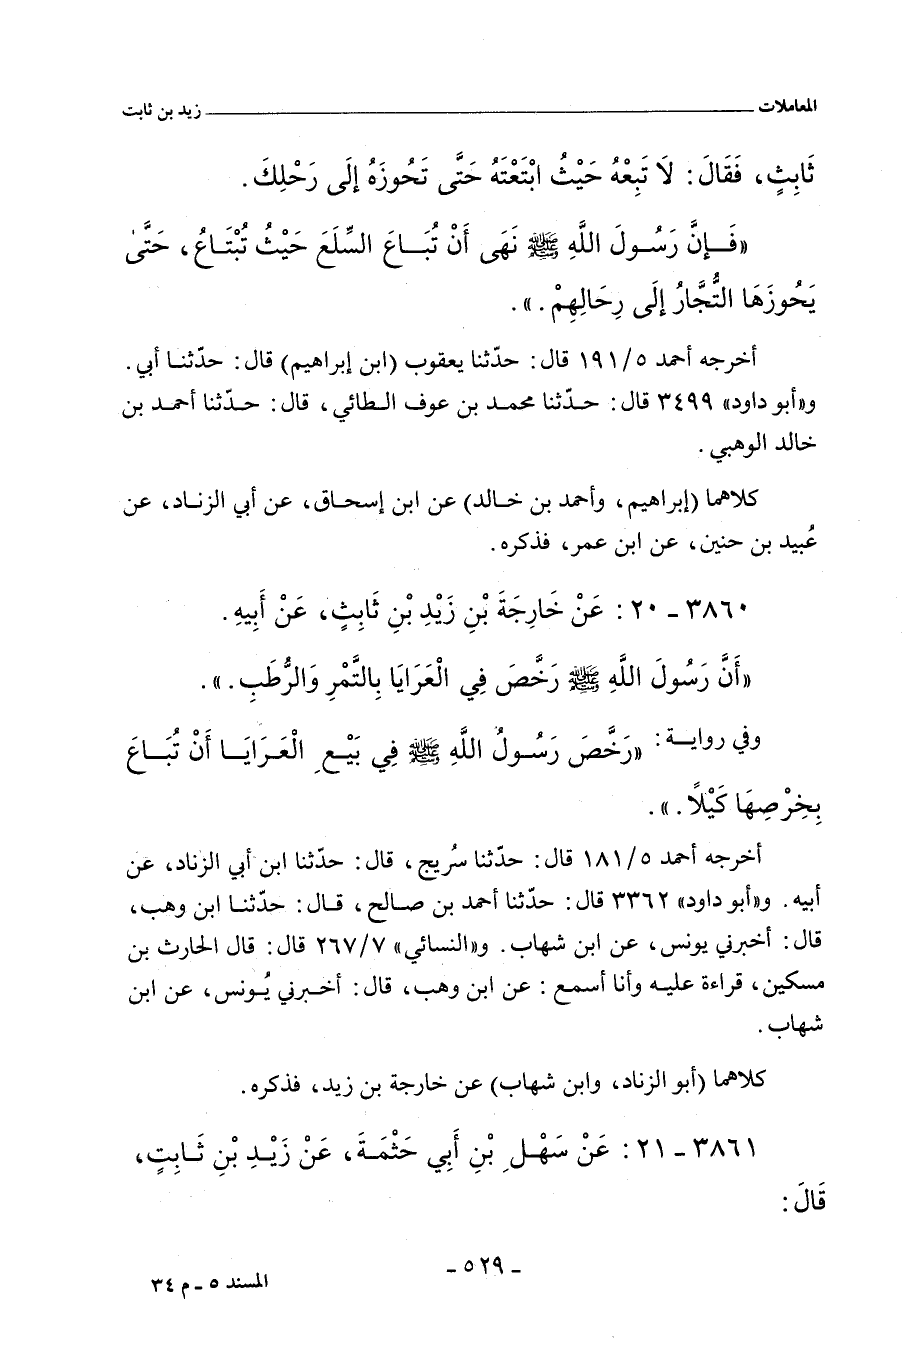 المعاملات ــــــــــــــــــــ زيد بن ثابت
ثَابِتٍ، فَقَالَ: لَا تَبِعْهُ حَيْثُ ابْتَعْتَهُ حَتَّى تَحُوزَهُ إِلَى رَحْلِكَ.
«فَإِنَّ رَسُولَ اللَّهِ ﷺ نَهَى أَنْ تُبَاعَ السِّلَعَ حَيْثُ تُبْتَاعُ، حَتَّى
يَحُوزَهَا التُّجَّارُ إِلَى رِحَالِهِمْ.».
أخرجه أحمد ١٩١/٥ قال: حدّثنا يعقوب (ابن إبراهيم) قال: حدّثنا أبي.
و«أبو داود» ٣٤٩٩ قال: حدّثنا محمد بن عوف الطائي، قال: حدّثنا أحمد بن
خالد الوهبي.
كلاهما (إبراهيم، وأحمد بن خالد) عن ابن إسحاق، عن أبي الزناد، عن
عُبيد بن حنين، عن ابن عمر، فذكره.
٣٨٦٠ ـ ٢٠: عَنْ خَارِجَةَ بْنِ زَيْدِ بْنِ ثَابِتٍ، عَنْ أَبِيهِ.
«أَنَّ رَسُولَ اللَّهِ ﷺ رَخَّصَ فِي الْعَرَايَا بِالتَّمْرِ وَالرُّطَبِ.».
وفي رواية: «رَخَّصَ رَسُولُ اللَّهِ ﷺ فِي بَيْعِ الْعَرَايَا أَنْ تُبَاعَ
بِخِرْصِهَا كَيْلًا.».
أخرجه أحمد ١٨١/٥ قال: حدّثنا سُريج، قال: حدّثنا ابن أبي الزناد، عن
أبيه. و«أبو داود» ٣٣٦٢ قال: حدّثنا أحمد بن صالح، قال: حدّثنا ابن وهب،
قال: أخبرني يونس، عن ابن شهاب. و«النسائي» ٢٦٧/٧ قال: قال الحارث بن
مسكين، قراءة عليه وأنا أسمع: عن ابن وهب، قال: أخبرني يُونس، عن ابن
شهاب.
كلاهما (أبو الزناد، وابن شهاب) عن خارجة بن زيد، فذكره.
٣٨٦١ ـ ٢١: عَنْ سَهْلِ بْنِ أَبِي حَثْمَةَ، عَنْ زَيْدِ بْنِ ثَابِتٍ،
قَالَ:
ـ ٥٢٩ ـ
المسند ٥ ـ م ٣٤